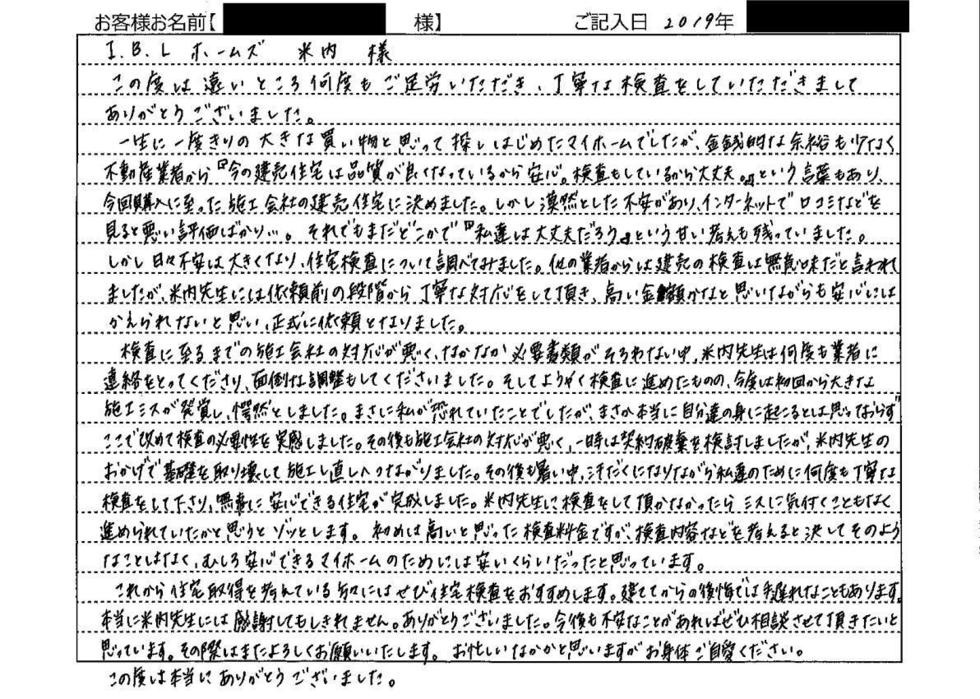 お客様お名前【 様】 ご記入日 2019年
I.B.L ホームズ 米内 様
この度は遠いところ何度もご足労いただき、丁寧な検査をしていただきまして
ありがとうございました。
一生に一度きりの大きな買い物と思って探しはじめたマイホームでしたが、金銭的な余裕も少なく
不動産業者から『今の建売住宅は品質が良くなっているから安心。検査もしているから大丈夫。』という言葉もあり、
今回購入に至った施工会社の建売住宅に決めました。しかし漠然とした不安があり、インターネットで口コミなどを
見ると悪い評価ばかり…。それでもまだどこかで『私達は大丈夫だろう』という甘い考えも残っていました。
しかし日々不安は大きくなり、住宅検査について調べてみました。他の業者からは建売の検査は無意味だと言われ
ましたが、米内先生には依頼前の段階から丁寧な対応をして頂き、高い金額かなと思いながらも安心には
かえられないと思い、正式に依頼となりました。
検査に至るまでの施工会社の対応が悪く、なかなか必要書類がそろわない中、米内先生は何度も業者に
連絡をとってくださり、面倒な調整もしてくださいました。そしてようやく検査に進めたものの、今度は初回から大きな
施工ミスが発覚し、愕然としました。まさに私が恐れていたことでしたが、まさか本当に自分達の身に起こるとは思っておらず
ここで改めて検査の必要性を実感しました。その後も施工会社の対応が悪く、一時は契約破棄を検討しましたが、米内先生の
おかげで基礎を取り壊して施工し直しへつながりました。その後も暑い中、汗だくになりながら私達のために何度も丁寧な
検査をして下さり、無事に安心できる住宅が完成しました。米内先生に検査をして頂かなかったらミスに気付くこともなく
進められていたかと思うとゾッとします。初めは高いと思った検査料金ですが、検査内容などを考えると決してそのよう
なことはなく、むしろ安心できるマイホームのためには安いくらいだったと思っています。
これから住宅取得を考えている方々にはぜひ住宅検査をおすすめします。建ててからの後悔では手遅れなこともあります。
本当に米内先生には感謝してもしきれません。ありがとうございました。今後も不安なことがあればぜひ相談させて頂きたいと
思っています。その際はまたよろしくお願いいたします。お忙しいなかかと思いますがお身体ご自愛ください。
この度は本当にありがとうございました。